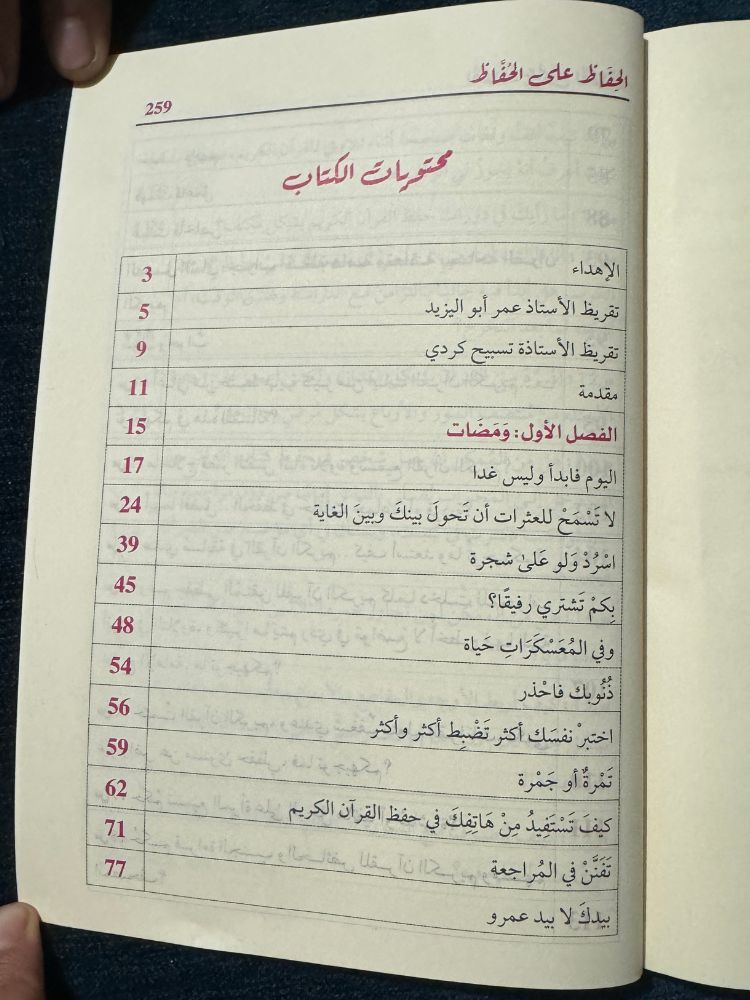 الحِفَاظ على الحُفَّاظ
259
محتويات الكتاب
الإهداء 3
تقريظ الأستاذ عمر أبو اليزيد 5
تقريظ الأستاذة تسبيح كردي 9
مقدمة 11
الفصل الأول: وَمَضَات 15
اليوم فابدأ وليس غدا 17
لا تَسْمَحْ للعثرات أن تَحولَ بينكَ وبينَ الغاية 24
اسْرُدْ وَلو عَلىٰ شجرة 39
بِكمْ تَشتري رفيقًا؟ 45
وفي المُعَسْكَرَاتِ حَياة 48
ذُنُوبك فاحْذر 54
اختبرْ نفسَك أكثر تَضْبِط أكثر وأكثر 56
تَمْرةٌ أو جَمْرة 59
كيفَ تَسْتَفِيدُ مِنْ هَاتِفِكَ في حفظ القرآن الكريم 62
تَفَنَّنْ في المُراجعة 71
بيدكَ لا بيد عمرو 77